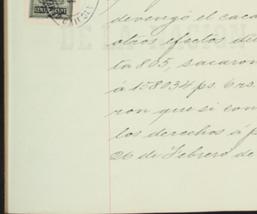 devengó el caca
otros efectos du
ta 805, sacaron
a 158034 ps. 6 rs.
ron que si con
los derechos á p
26 de Febrero de